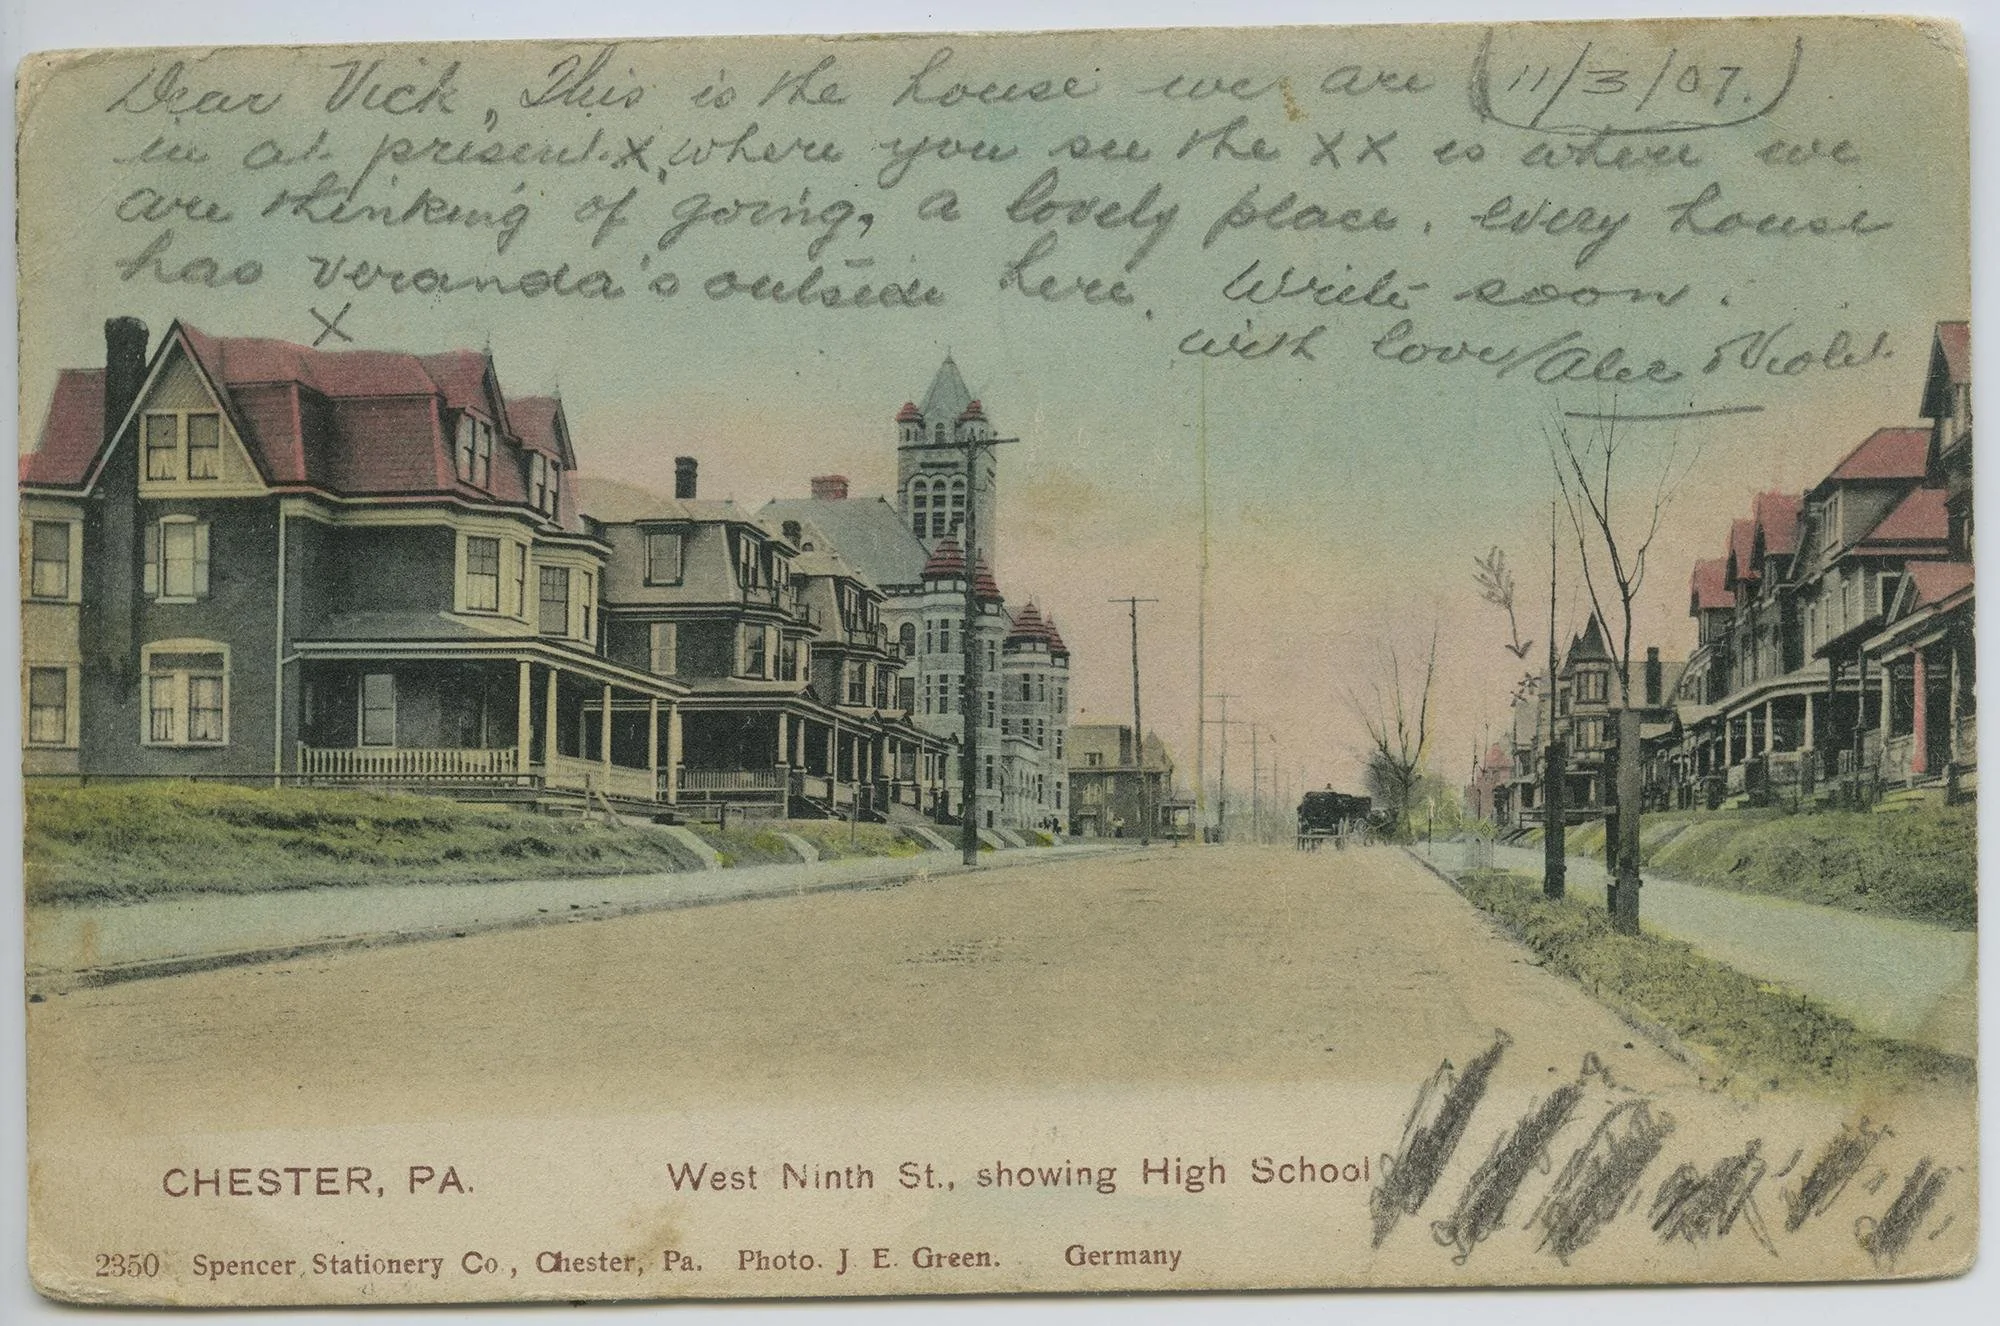 Dear Vick, This is the house we are (11/3/07.)
in at present. X, where you see the XX is where we
are thinking of going, a lovely place. every house
has veranda's outside here. Write soon.
with love / Alec & Violet.
X
XX
CHESTER, PA. West Ninth St., showing High School
2350 Spencer Stationery Co., Chester, Pa. Photo. J. E. Green. Germany